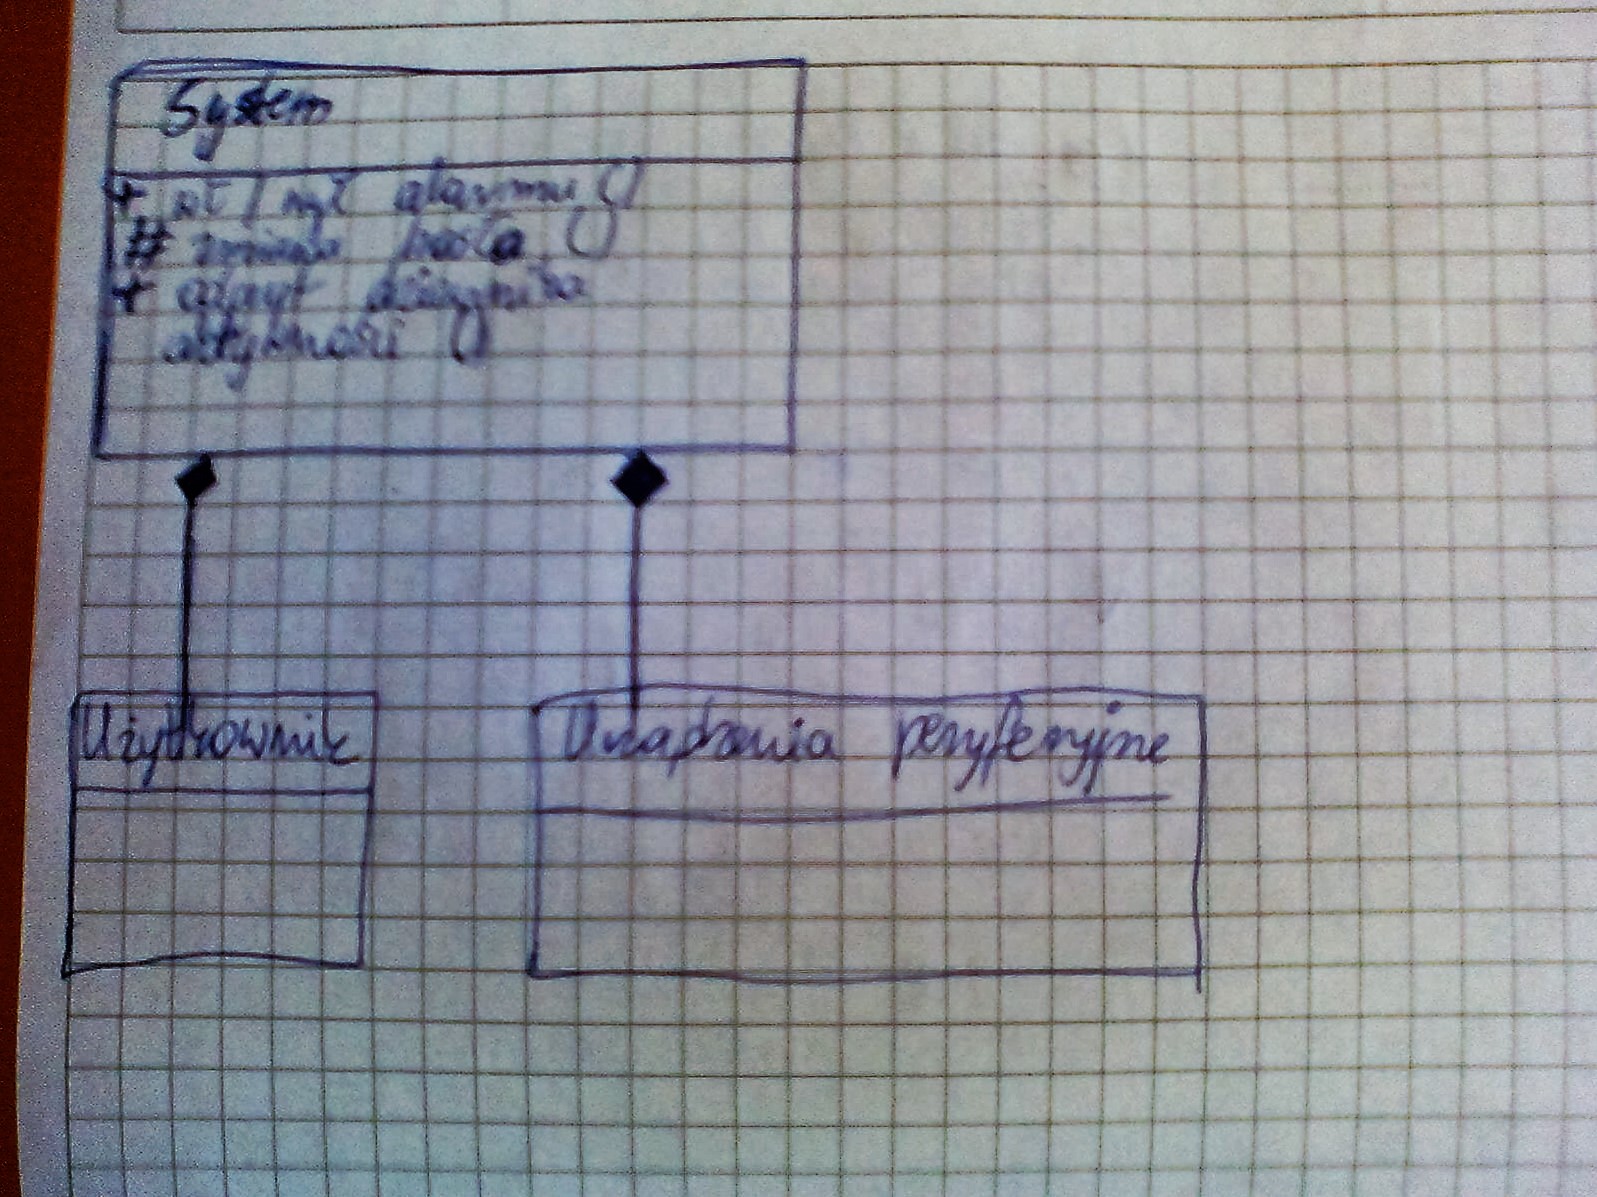 System
+ wł / wył alarmu ()
# zmiana hasła ()
+ odczyt dziennika
aktywności ()
Użytkownik
Urządzenia peryferyjne